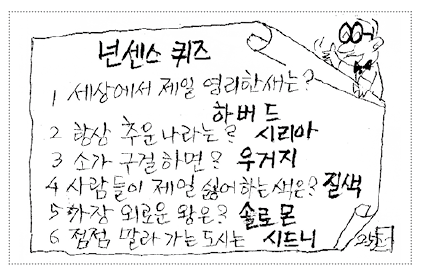 넌센스 퀴즈
1 세상에서 제일 영리한새는?
하버드
2 항상 추운나라는? 시리아
3 소가 구걸하면? 우거지
4 사람들이 제일 싫어하는색은? 질색
5 가장 외로운 왕은? 솔로몬
6 점점 말라가는도시는 시드니